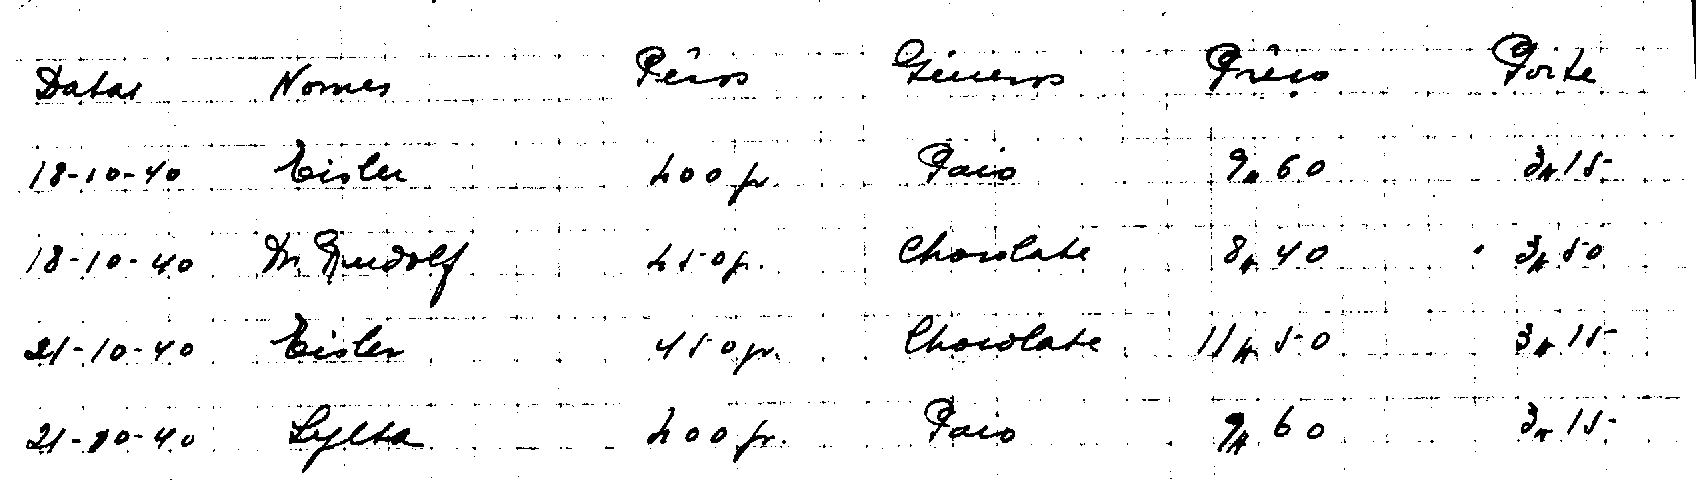 Datas Nomes Pêsos Géneros Prêço Porte
18-10-40 Eisler 200 gr. Paio 9$60 3$15
18-10-40 Dr. Rudolf 250 gr. Chocolate 8$40 3$50
21-10-40 Eisler 450 gr. Chocolate 11$50 3$15
21-10-40 200 gr. Paio 9$60 3$15